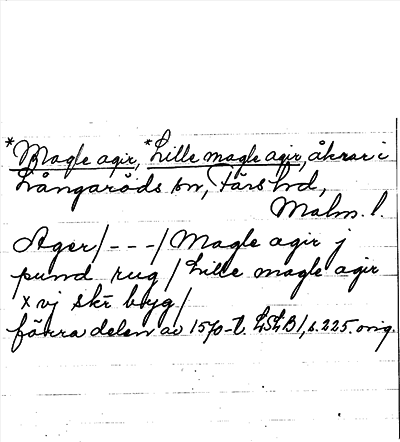 *Magle agir, *Lille magle agir, åkrar i
Långaröds sn, Färs hd,
Malm. l.
Ager/---/Magle agir j
pund rug/Lille magle agir
xvj skr byg/
förra delen av 1570-t. LSLB1, s. 225. orig.